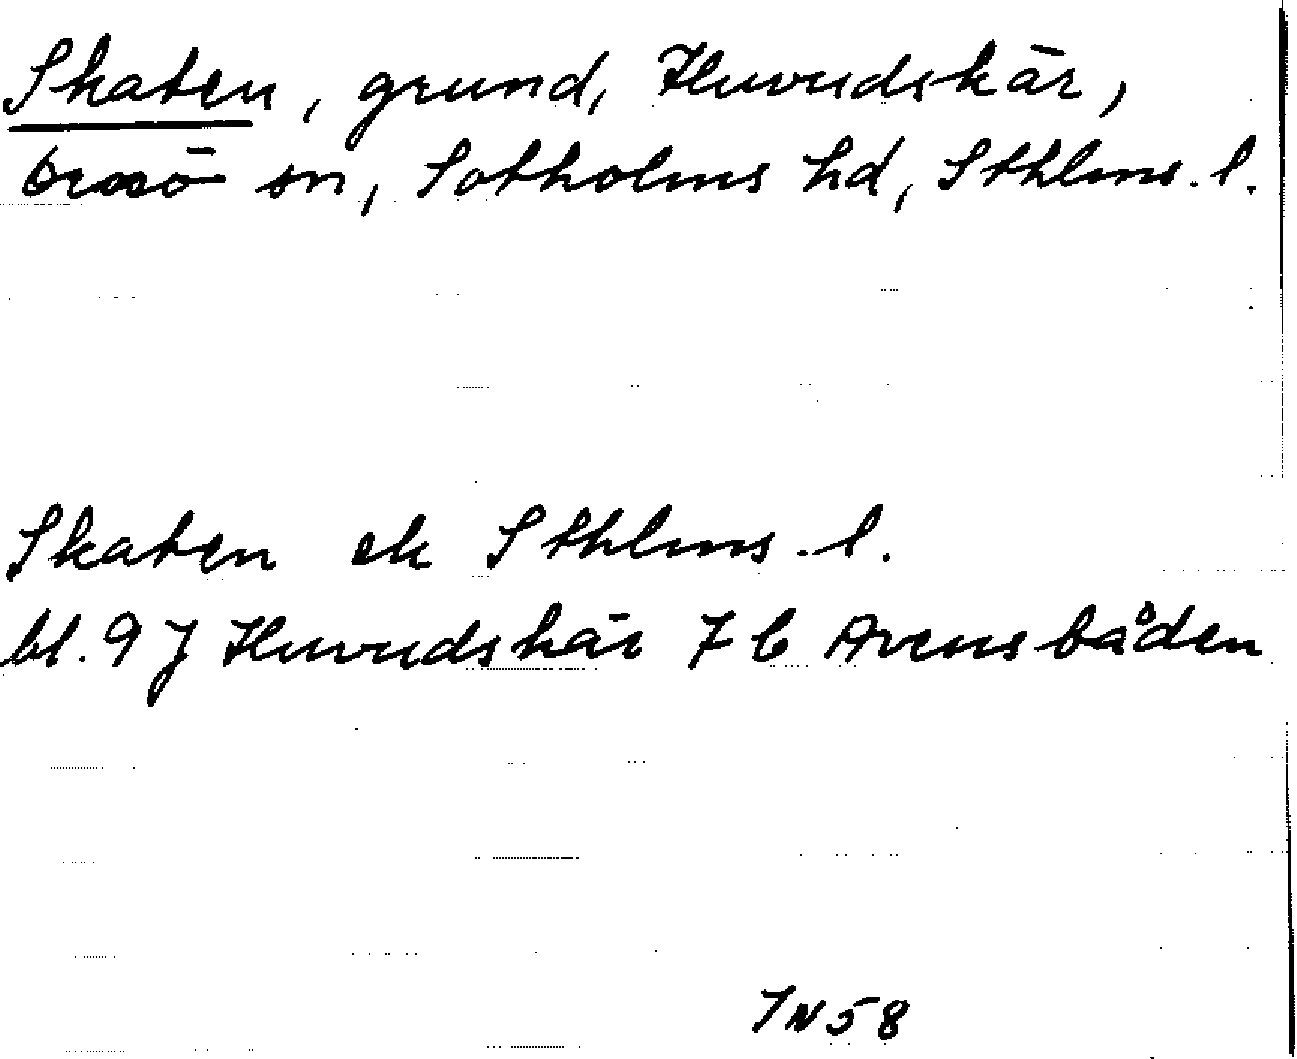 Skaten, grund, Huvudskär,
Ornö sn, Sotholms hd, Sthlms. l.
Skaten ek Sthlms. l.
bl. 9 J Huvudskär 7 b Arensbåden
IN 58